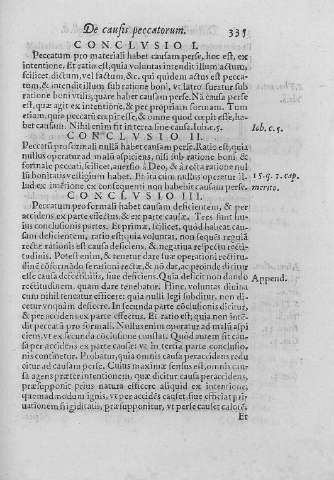 De causis peccatorum. 335
CONCLVSIO I.
Peccatum pro materiali habet causam per se, hoc est, ex
intentione. Et ratio est, quia voluntas intendit illum actum,
scilicet dictum, vel factum, &c. qui quidem actus est peccatum,
&
ratione boni vtilis, quare habet causam per se. Nā causa per se
est, quæ agit ex intentione, & per propriam formam. Tum
etiam, quia peccatū cœpit esse, & omne quod cœpit esse, habet
causam. Nihil enim fit in terra sine causa. Iob. c. 5.
Iob. c. 5.
CONCLVSIO II.
Peccatū pro formali nullā habet causam per se. Ratio est, quia
nullus operatur ad malū aspiciens, nisi sub ratione boni: &
formale peccati, scilicet, auersio à Deo, & à recta ratione nullū
bonitatis vestigium habet. Et ita cum nullus operatur
15. q. 1. cap.
illud ex intentione, ex consequenti non habebit causam per se.
merito.
CONCLVSIO III.
Peccatum pro formali habet causam deficientem, & per
accidens ex parte effectus, & ex parte causæ. Tres sunt huius
conclusionis partes. Et prima, scilicet, quod habeat causam
deficientem, ratio est, quia voluntas, non sequēs regulā
rectæ rationis est causa deficiens, & negatiua respectu rectitudinis.
Potest enim, & tenetur dare suæ operationi rectitudinē
conformādo se rationi rectæ, & nō dat, ac proinde dicitur
esse causa
Append.
rectitudinem, quam dare tenebatur. Hinc, voluntas diuina
cum nihil teneatur efficere: quia nulli legi subditur, non dicetur
vnquam deficere. In secunda parte cōclusionis dicitur,
& per accidens ex parte effectus. Et ratio est; quia non intēdit
peccatū pro formali. Nullus enim operatur ad malū aspiciens,
vt ex secunda coclusione constat. Quod autem sit causa
per accidens ex parte causæ vt in tertia parte conclusionis
continetur. Probatur, quia omnis causa per accidens reducitur
ad causam per se. Cuius maxima sensus est, omnis causa
agens præter intentionem, quæ dicitur causa per accidens,
præsupponit prius natura efficere aliquid ex intentione,
quemadmodum ignis, vt per accidēs causet siue efficiat priuationem
frigiditatis, præsupponitur, vt per se causet calorē.
Et